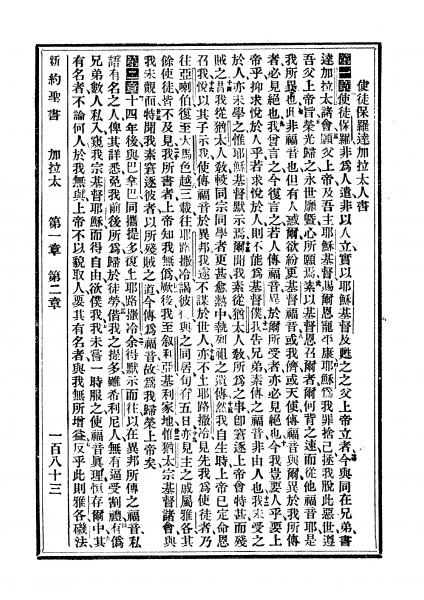 使徒保羅達加拉太人書
第一章使徒保羅非爲人遣非以人立實以耶穌基督及甦之之父上帝立者今與同在兄弟書
達加拉太諸會願父上帝及吾主耶穌基督賜爾恩寵平康耶穌爲我罪捨己拯我脫此惡世遵
吾父上帝旨榮光歸之永世靡曁心所願焉素以基督恩召爾者爾何背之速而從他福音耶是
我所異也此非福音也但有人惑爾欲紛更基督福音或我儕或天使傳福音與爾異於我所傳
者必見絕也我曾言之今復言之若人傳福音異於爾所受者亦必見絕也今我豈要人乎要上
帝乎抑求悅於人乎若求悅於人則不能爲基督僕我告兄弟素傳之福音非由人也我未受之
於人亦未學之惟耶穌基督默示焉爾聞我素從猶太人敎所爲之事卽窘逐上帝會特甚而殘
賊之且我從猶太人敎較同宗同學者更甚愈熱中執列祖之遺傳然我自生時上帝已定命恩
召我悅以其子示我使傳福音於異邦我遂不謀於世人亦不上耶路撒冷見先我爲使徒者乃
往亞喇伯復至大馬色越三載往耶路撒冷謁彼得與之同居旬有五日亦見主之戚屬雅各其
餘使徒皆不及見我所書者上帝知我無僞厥後我至叙利亞基利家地惟猶太宗基督諸會與
我未覿面特聞我素窘逐彼者以所殘賊之道今傳爲福音故爲我歸榮上帝矣
第二章十四年後與巴拿巴同攜提多復上耶路撒冷余得默示而往以在異邦所傳之福音私
語有名之人俾其詳悉免我前後所爲歸於徒勞偕我之提多雖希利尼人無有逼受割禮有僞
兄弟數人私入窺我宗基督耶穌而得自由欲僕我我未嘗一時服之使福音眞理恒存爾中其
有名者不論何人於我無與上帝不以貌取人要其有名者與我無所增益反乎此則雅各磯法
新約聖書 加拉太 第一章 第二章 一百八十三